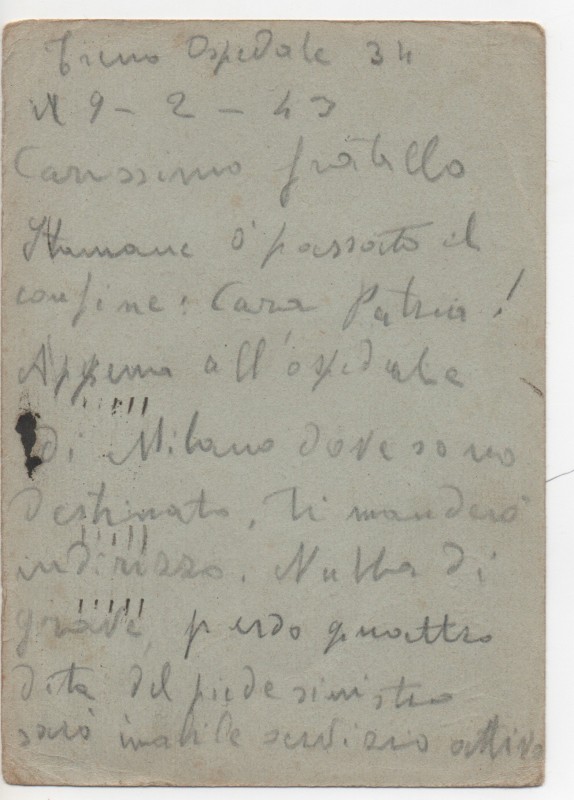 Treno Ospedale 34
lì 9 - 2 - 43
Carissimo fratello
Stamane ò passato il
confine: Cara Patria!
Appena all'ospedale
di Milano dove sono
destinato, ti manderò
indirizzo. Nulla di
grave, perdo quattro
dita del piede sinistro
sarò inabile servizio attivo